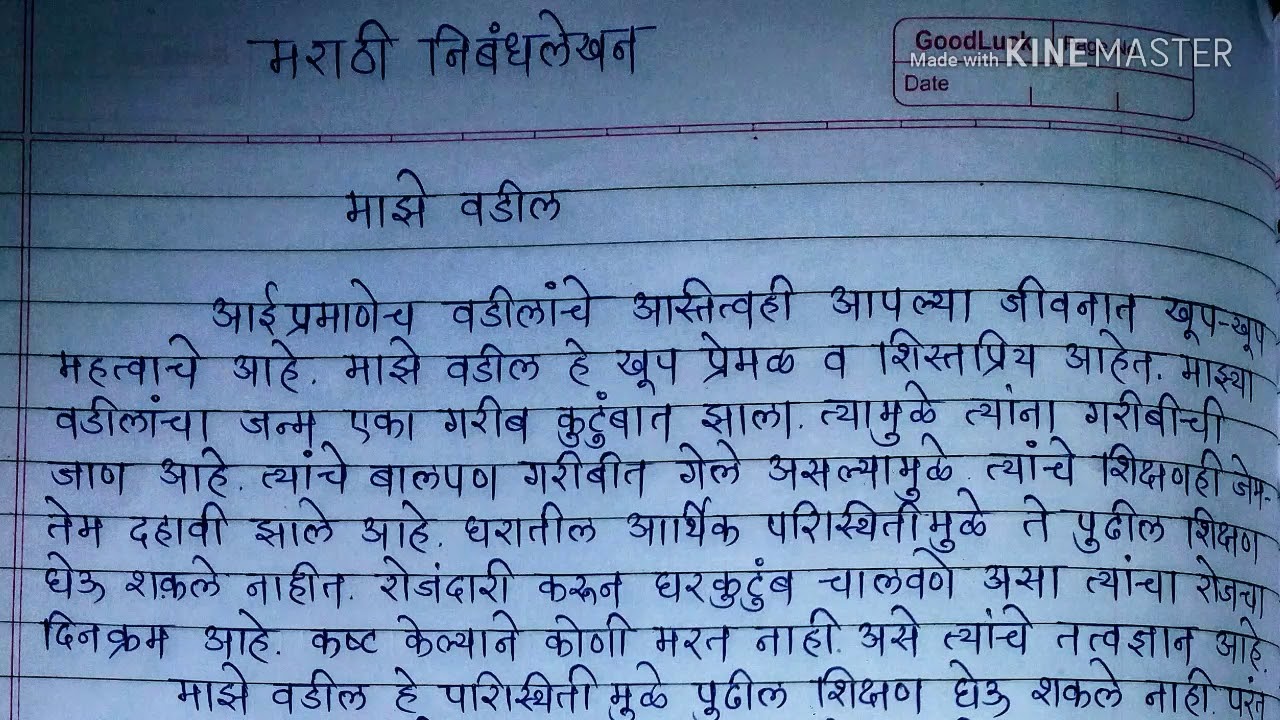 मराठी निबंधलेखन
GoodLuck
Made with KINEMASTER
Date
माझे वडील
आईप्रमाणेच वडीलांचे आस्तित्वही आपल्या जीवनात खूप-खूप
महत्वाचे आहे. माझे वडील हे खूप प्रेमळ व शिस्तप्रिय आहेत. माझ्या
वडीलांचा जन्म एका गरीब कुटुंबात झाला. त्यामुळे त्यांना गरीबीची
जाण आहे. त्यांचे बालपण गरीबीत गेले असल्यामुळे. त्यांचे शिक्षणही जेम-
तेम दहावी झाले आहे. घरातील आर्थिक परिस्थितीमुळे ते पुढील शिक्षण
घेऊ शकले नाहीत. रोजंदारी करून घरकुटुंब चालवणे असा त्यांचा रोजचा
दिनक्रम आहे. कष्ट केल्याने कोणी मरत नाही. असे त्यांचे तत्वज्ञान आहे.
माझे वडील हे परिस्थिती मूळे पुढील शिक्षण घेऊ शकले नाही. परंतु